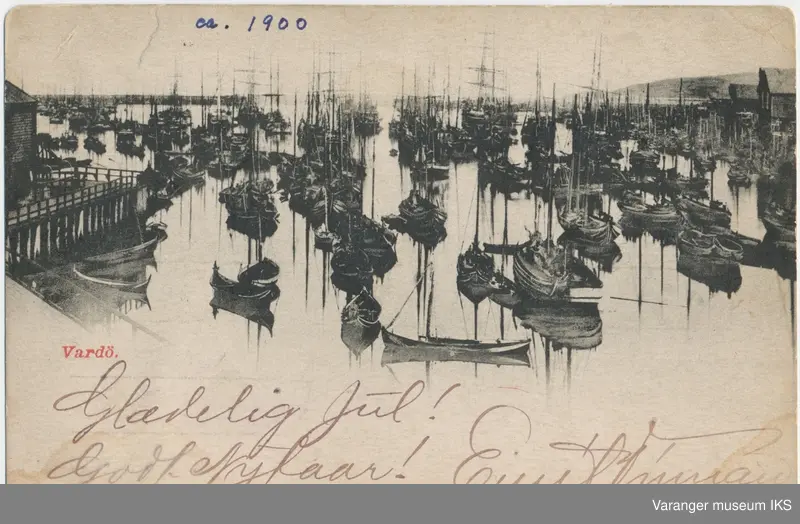 ca. 1900
Vardö.
Glædelig Jul!
Godt Nytaar!
Varanger museum IKS